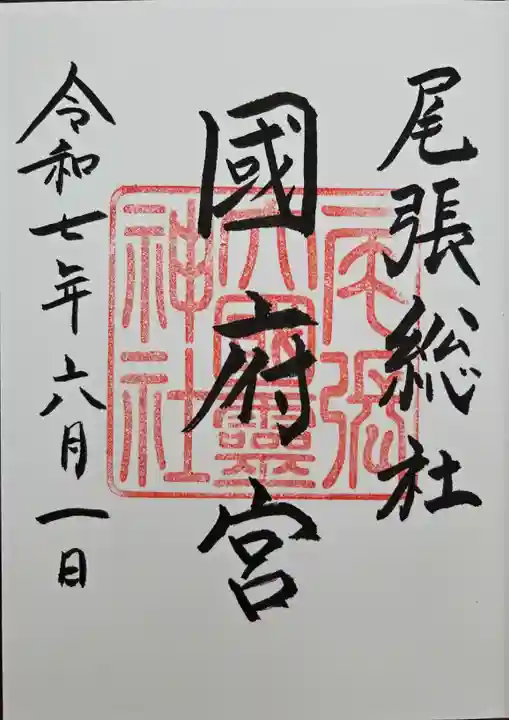 尾張総社
國府宮
令和七年六月一日
尾張
大國靈
神社